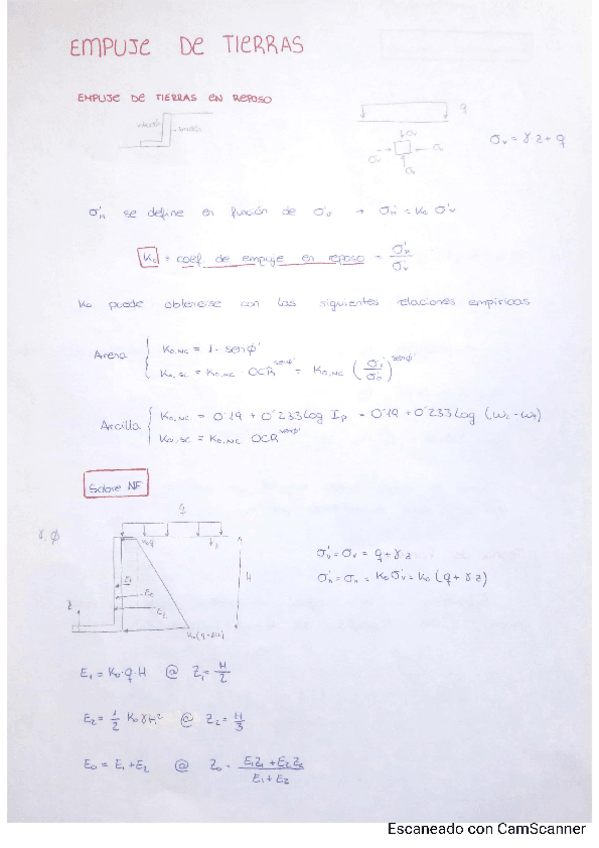 EMPUJE DE TIERRAS
EMPUJE DE TIERRAS EN REPOSO
q
σv = γ z + q
σv
σv
σ'h se define en función de σ'v → σ'h = K0 σ'v
K0 = coef de empuje en reposo = σ'h / σ'v
K0 puede obtenerse con las siguientes relaciones empíricas
Arena { K0,NC = 1 - senϕ'
K0,SC = K0,NC · OCR^senϕ' = K0,NC
Arcilla { K0,NC = 0'19 + 0'233 log Ip = 0'19 + 0'233 log
K0,SC = K0,NC OCR^senϕ'
Sobre NF
q
γ, ϕ
K0q
H
z
E1
E2
σ'v = σv = q + γ z
σ'h = σh = K0 σ'v = K0 (q + γ z)
E1 = K0 · q · H @ Z1 = H/2
E2 = 1/2 K0 γ H² @ Z2 = H/3
E0 = E1 + E2 @ Z0 = E1Z1 + E2Z2 / E1 + E2
Escaneado con CamScanner